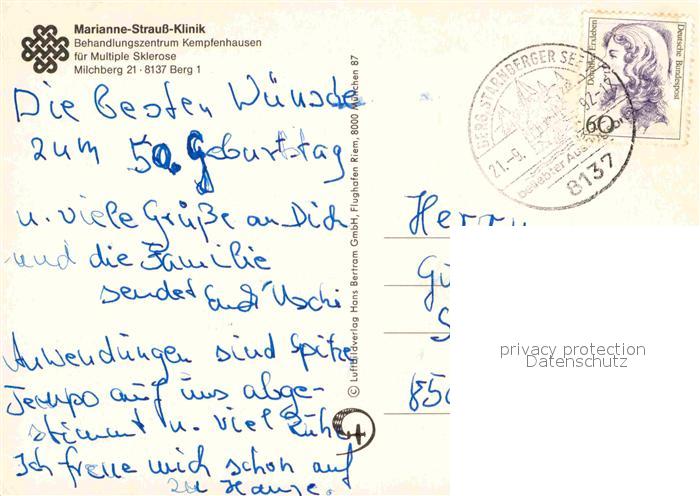 Marianne-Strauß-Klinik
Behandlungszentrum Kempfenhausen
für Multiple Sklerose
Milchberg 21 · 8137 Berg 1
Die besten Wünsche
zum 50. Geburtstag
u. viele Grüße an Dich
und die Familie
sendet Euch Uschi
Anwendungen sind Spitze
Tempo auf uns abge-
stimmt u. viel Ruhe
Ich freue mich schon auf
zu Hause.
© Luftbildverlag Hans Bertram GmbH, Flughafen Riem, 8000 München 87
BERG, STARNBERGER SEE
21.-9.
92.-
beliebter
8137
Dorothea Erxleben
Deutsche Bundespost
60
Herrn
Gü
S
850
privacy protection
Datenschutz